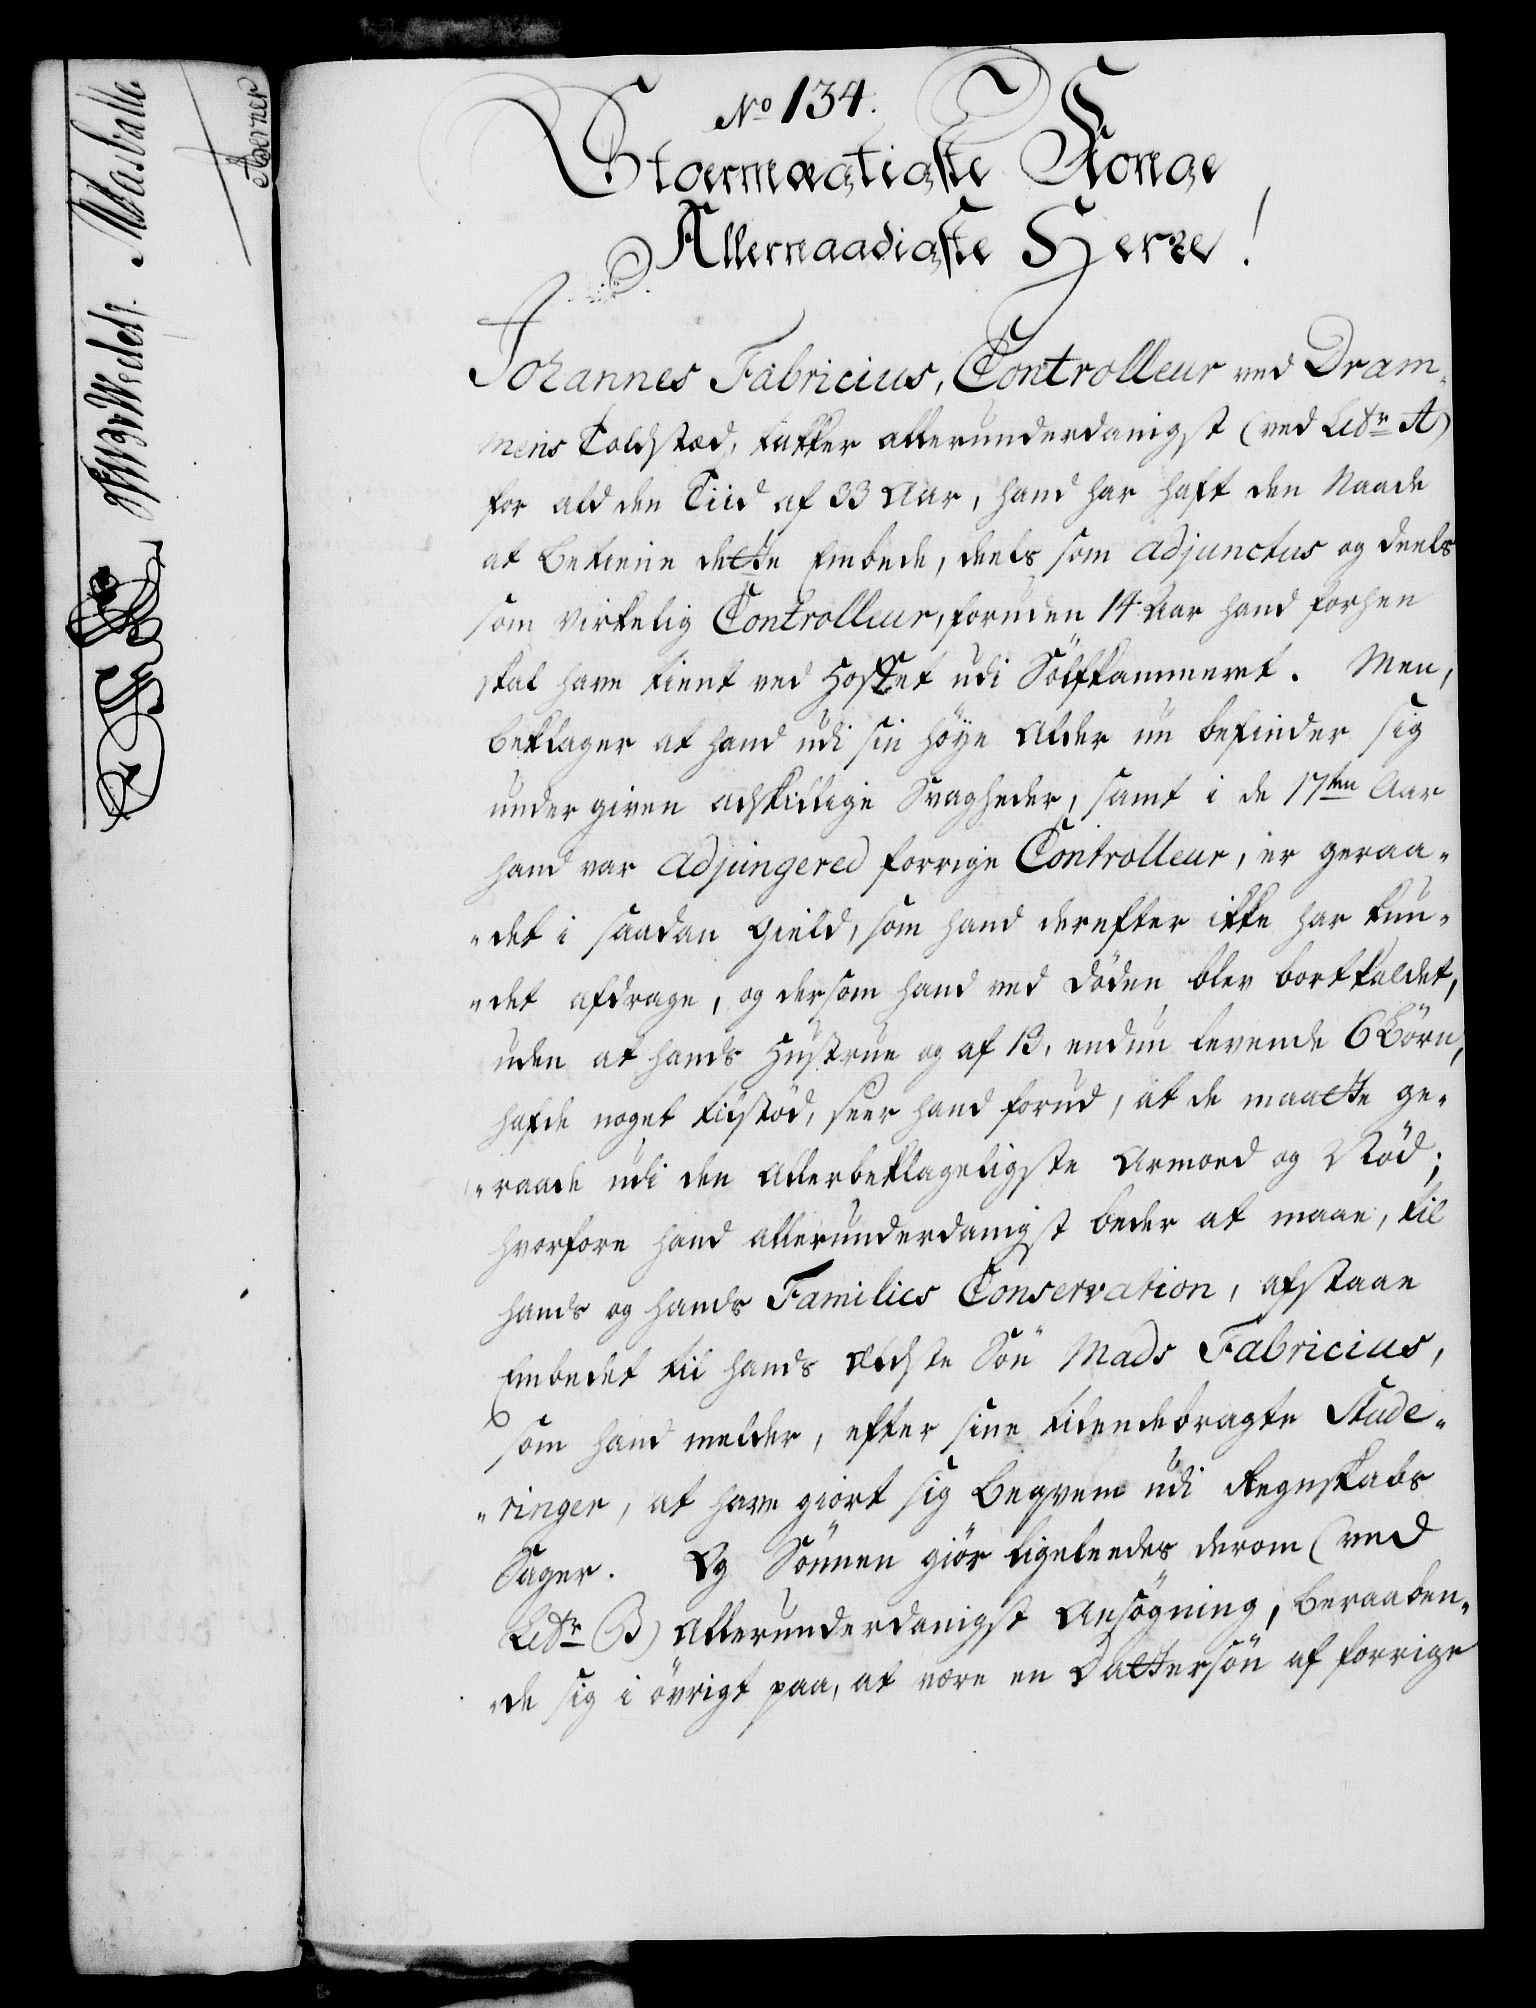 No 134.
Stoermægtigste Konge
Allernaadigste Herre!
Johannes Fabricius, Controlleur ved Dram-
mens Toldsted, takker allerunderdanigst (ved Litr A)
for ald den Tiid af 33 Aar, hand har haft den Naade
at betiene dette Embede, deels som Adjunctus og deels
som virkelig Controlleur, foruden 14 Aar hand forhen
skal have tient ved Hoffet udi Sölfkammeret. Men,
beklager at hand udi sin höye Alder nu befinder sig
undergiven adskillige Svagheder, samt i de 17ten Aar
hand var Adjungered forrige Controlleur, er geraa-
-det i saadan Gield, som hand derefter ikke har kun-
-det afdrage, og dersom hand ved Döden blev bortkaldet,
uden at hands Hustrue og af 13, endnu levende 6 Börn,
hafde noget tilstöd, seer hand forud, at de maatte ge-
-raade udi den Allerbeklageligste Armoed og Nöd;
hvorfore hand allerunderdanigst beder at maae, til
hands og hands Families Conservation, afstaae
Embedet til hands Ældste Sön Mads Fabricius,
som hand melder, efter sine tilendebragte Stude-
-ringer, at have giort sig beqvem udi Regnskabs
Sager. Og Sönnen giör ligeleedes derom (ved
Litr B) Allerunderdanigst Ansögning, beraaben-
-de sig i övrigt paa, at være en Dattersön af forrige